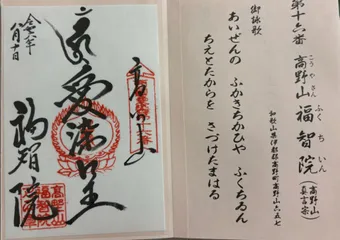 第十六番 高野山 福智院 (高野山真言宗)
こうやさん ふくちいん
和歌山県伊都郡高野町高野山六五七
御詠歌
あいぜんの ふかきちかひや ふくちゐん
ちえとたからを さづけたまはる
高野山
愛染明王
福智院
八月十日